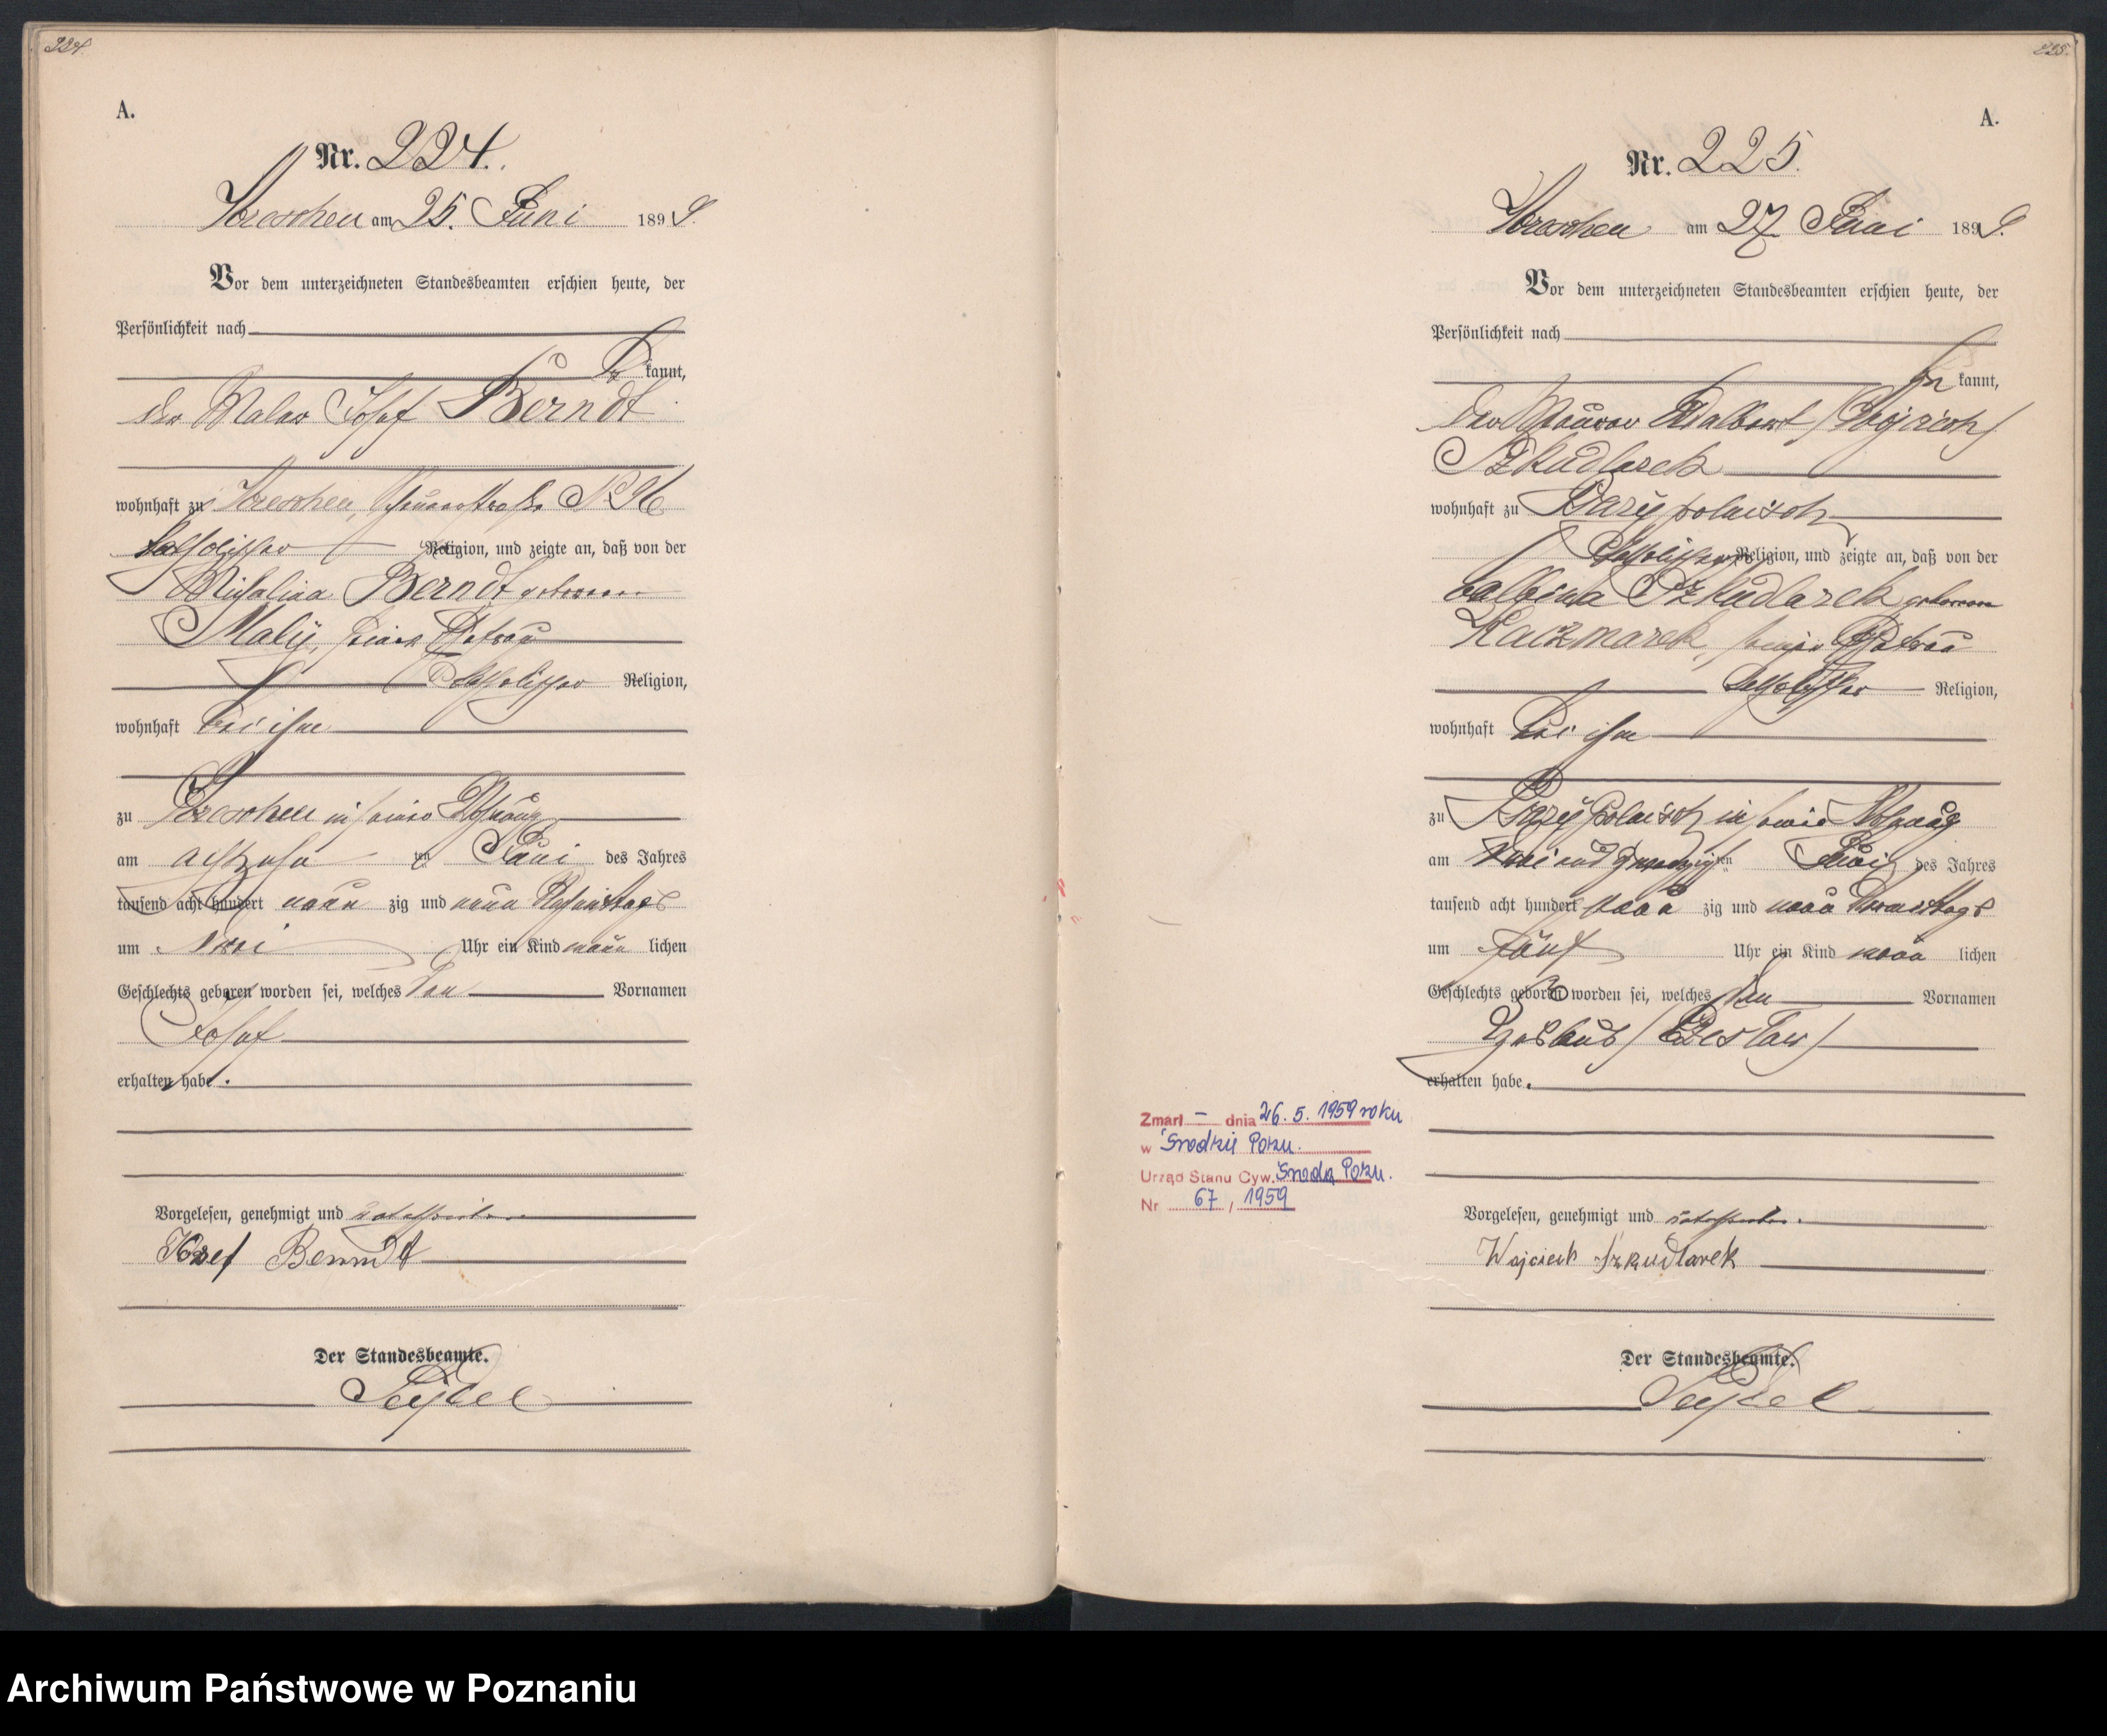 224.
A.
Nr. 224.
Wreschen am 25. Juni 1899.
Vor dem unterzeichneten Standesbeamten erschien heute, der
Persönlichkeit nach
be kannt,
der Maler Josef Berndt
wohnhaft zu Wreschen,
katholischer Religion, und zeigte an, daß von der
Michalina Berndt geborenen
Maly, seiner Ehefrau
katholischer Religion,
wohnhaft bei ihm
zu Wreschen in seiner Wohnung
am achtzehn ten Juni des Jahres
tausend acht hundert neun zig und neun Nachmittags
um drei Uhr ein Kind männ lichen
Geschlechts geboren worden sei, welches den Vornamen
Josef
erhalten habe.
Vorgelesen, genehmigt und unterschrieben.
Józef Berndt
Der Standesbeamte.
Seydel
225.
A.
Nr. 225.
Wreschen am 27. Juni 1899.
Vor dem unterzeichneten Standesbeamten erschien heute, der
Persönlichkeit nach
be kannt,
der Maurer Adalbert /Wojciech/
Szkudlarek
wohnhaft zu Bazy polnisch
katholischer Religion, und zeigte an, daß von der
Balbina Szkudlarek geborenen
Kaczmarek, seiner Ehefrau
katholischer Religion,
wohnhaft bei ihm
zu Bazy polnisch in seiner Wohnung
am drei und zwanzigsten Juni des Jahres
tausend acht hundert neun zig und neun Vormittags
um fünf Uhr ein Kind männ lichen
Geschlechts geboren worden sei, welches den Vornamen
Ceslaus /Czesław/
erhalten habe.
Zmarł – dnia 26. 5. 1959 roku
w Środzie Pozn.
Urząd Stanu Cyw. Środa Pozn.
Nr 67 / 1959
Vorgelesen, genehmigt und unterschrieben.
Wojciech Szkudlarek
Der Standesbeamte.
Seydel
Archiwum Państwowe w Poznaniu